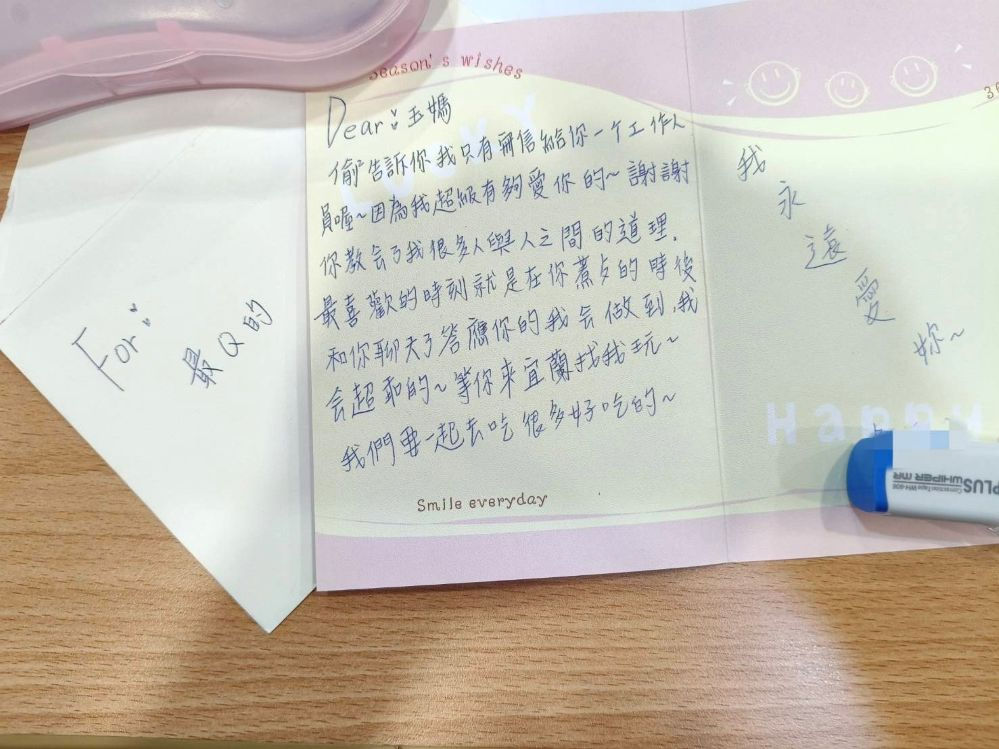 Season's wishes
Dear: 玉媽
偷偷告訴你我只有寫信給你一个工作人
員喔~因為我超級有夠愛你的~謝謝
你教会了我很多人與人之間的道理,
最喜歡的時刻就是在你蒸点的時後
和你聊天了答應你的我会做到,我
会超乖的~等你來宜蘭找我玩~
我們要一起去吃很多好吃的~
Smile everyday
我永遠愛妳~
Happy
For:
最Q的
PLUS
WHIPER MR
Correction Tape WH-606